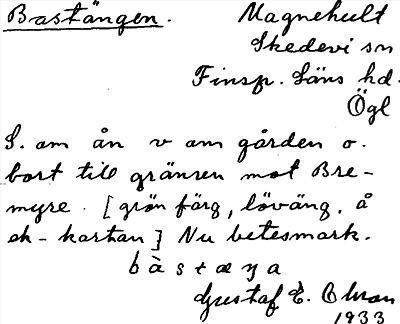 Bastängen. Magnehult
Skedevi sn
Finsp. läns hd.
Ögl
S. om ån v om gården o.
bort till gränsen mot Bre-
myre. [grön färg, löväng. å
ek-kartan] Nu betesmark.
bàstæŋa
Gustaf E. Olsson
1933